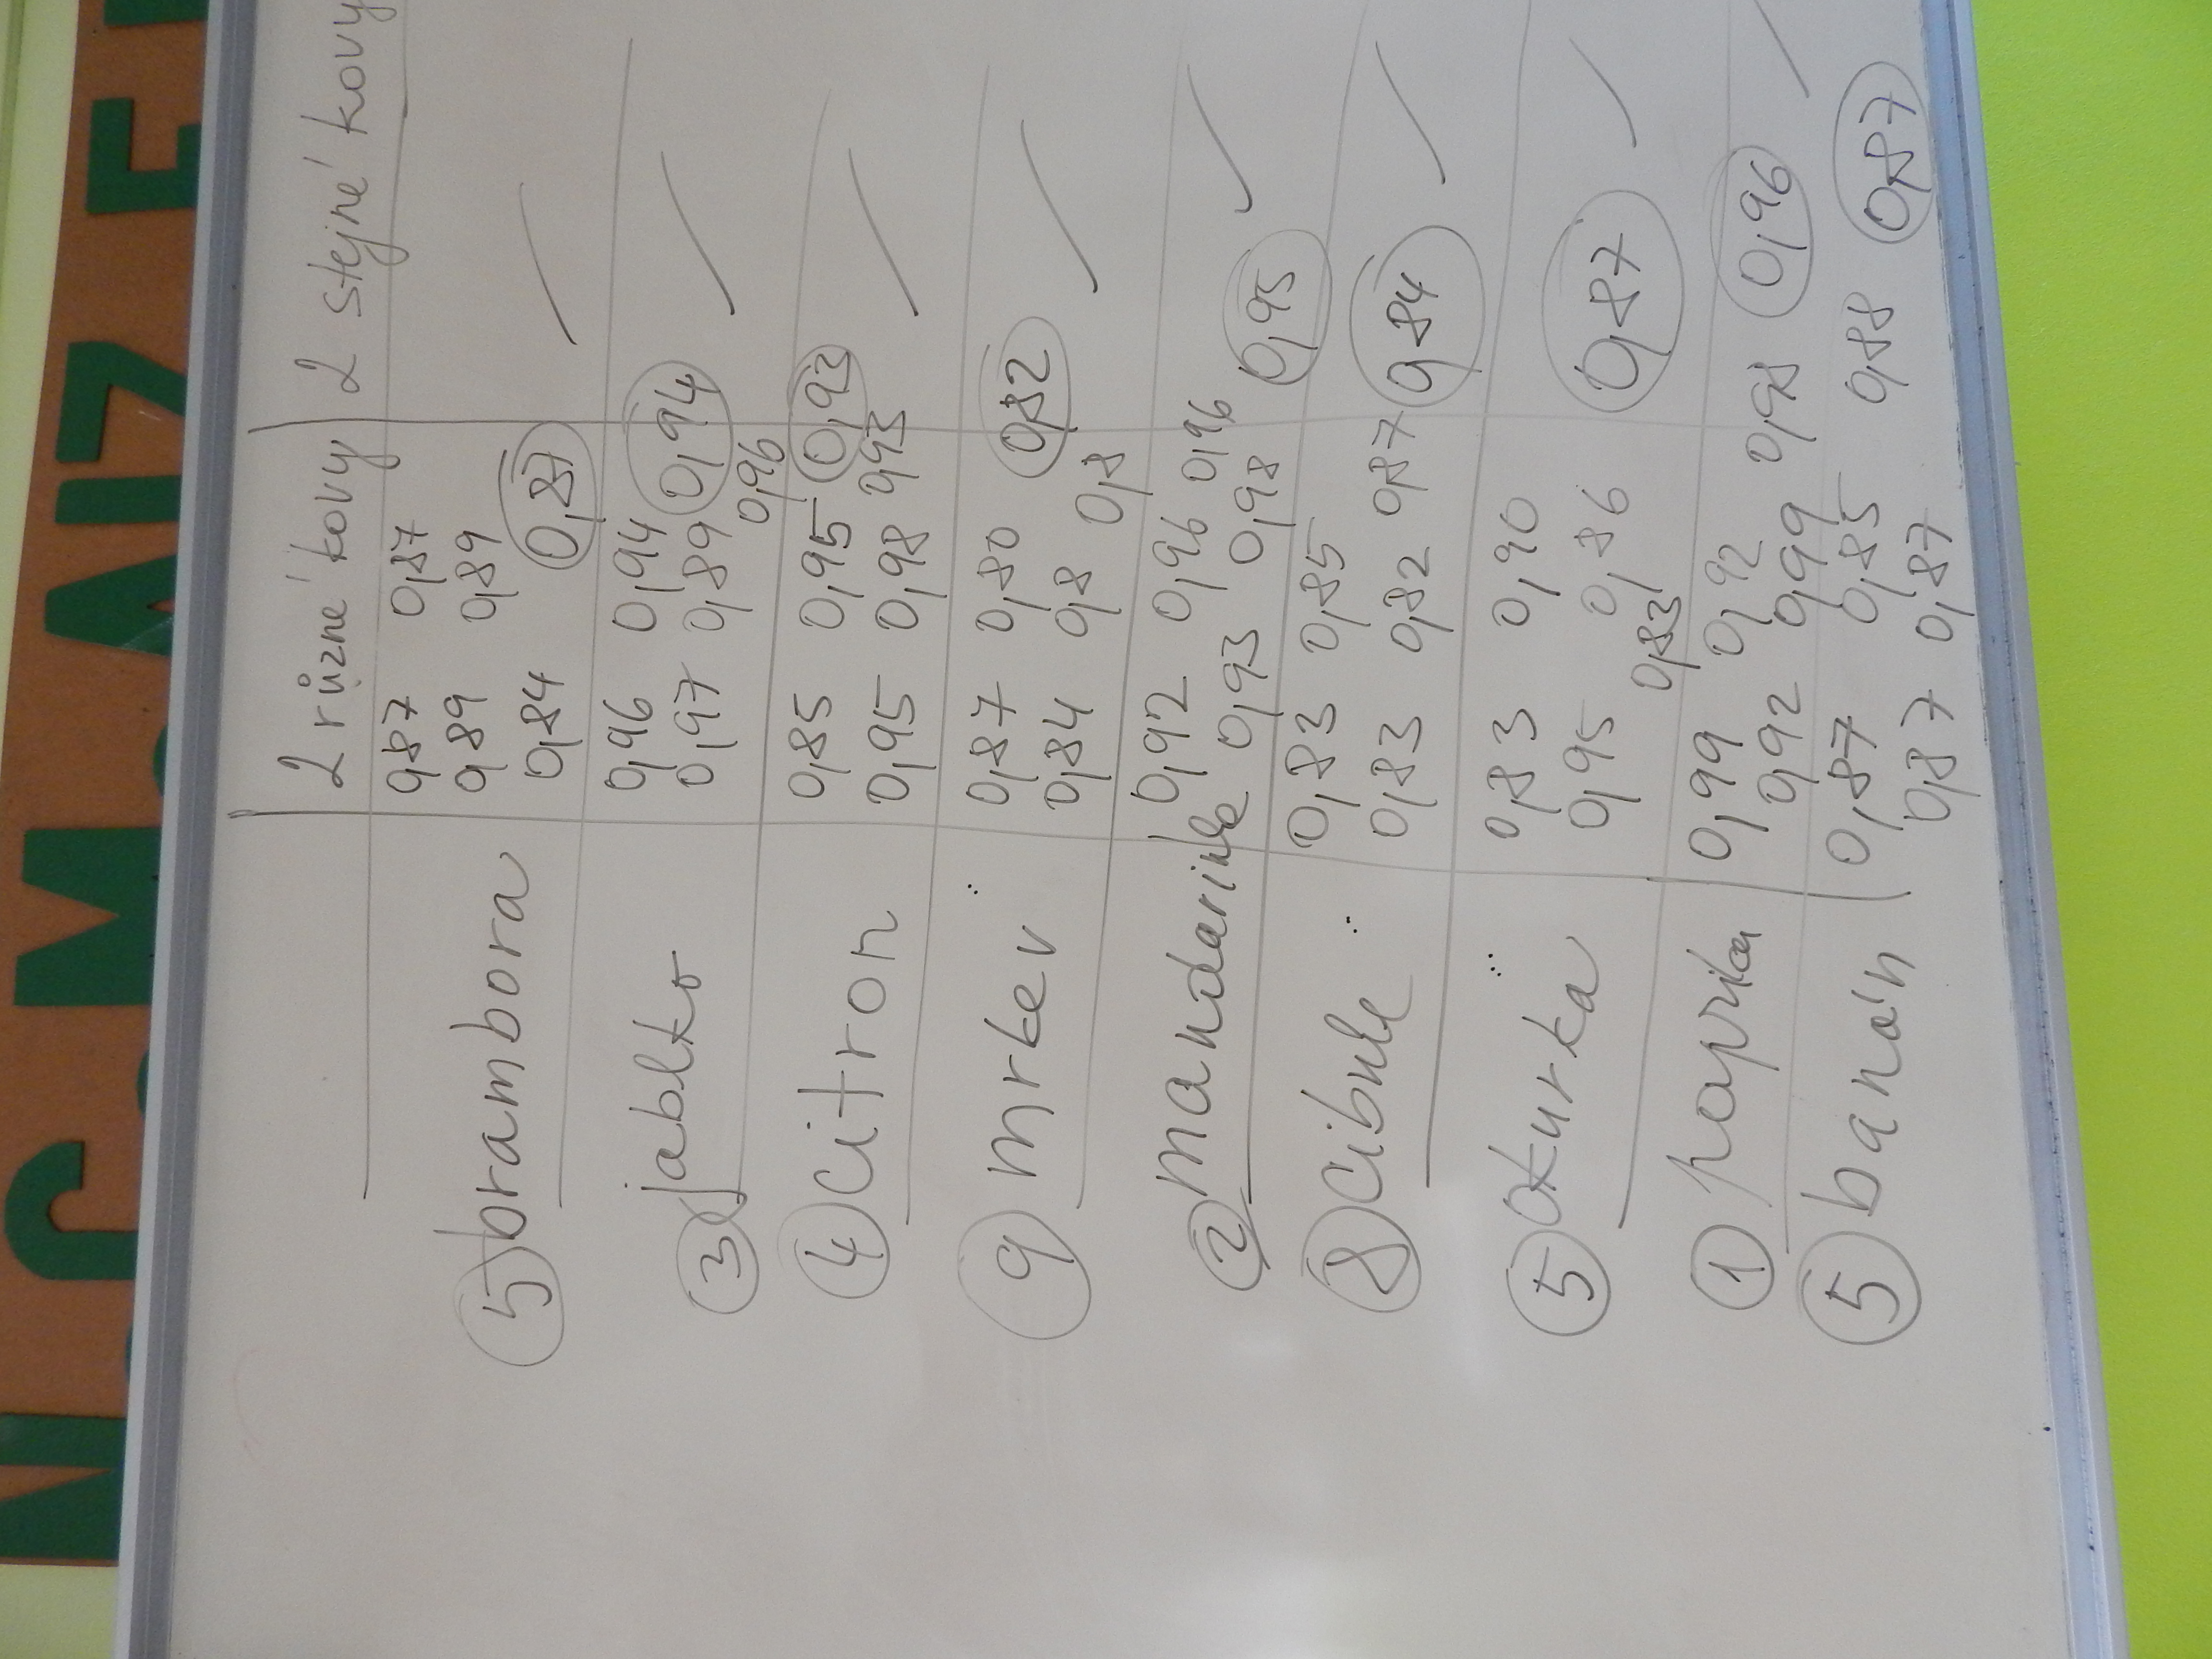 2 různé kovy 2 stejné kovy
0,87 0,87
0,89 0,89
5 brambora 0,84 0,87
0,96 0,94
3 jablko 0,97 0,89 0,94
0,96
0,85 0,95 0,93
4 citron 0,95 0,98 0,93
0,87 0,80 0,82
9 mrkev 0,84 0,8 0,8
0,92 0,96 0,96
2 mandarinka 0,93 0,98 0,95
0,83 0,85
8 cibule 0,83 0,82 0,87 0,84
0,83 0,90
5 okurka 0,95 0,86 0,87
0,83
0,99 0,92 0,98 0,96
1 paprika 0,92 0,99
0,87 0,85 0,88 0,87
5 banán 0,87 0,87